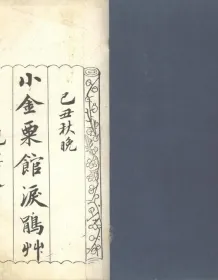 己丑秋晚
小金粟館淚鵑艸